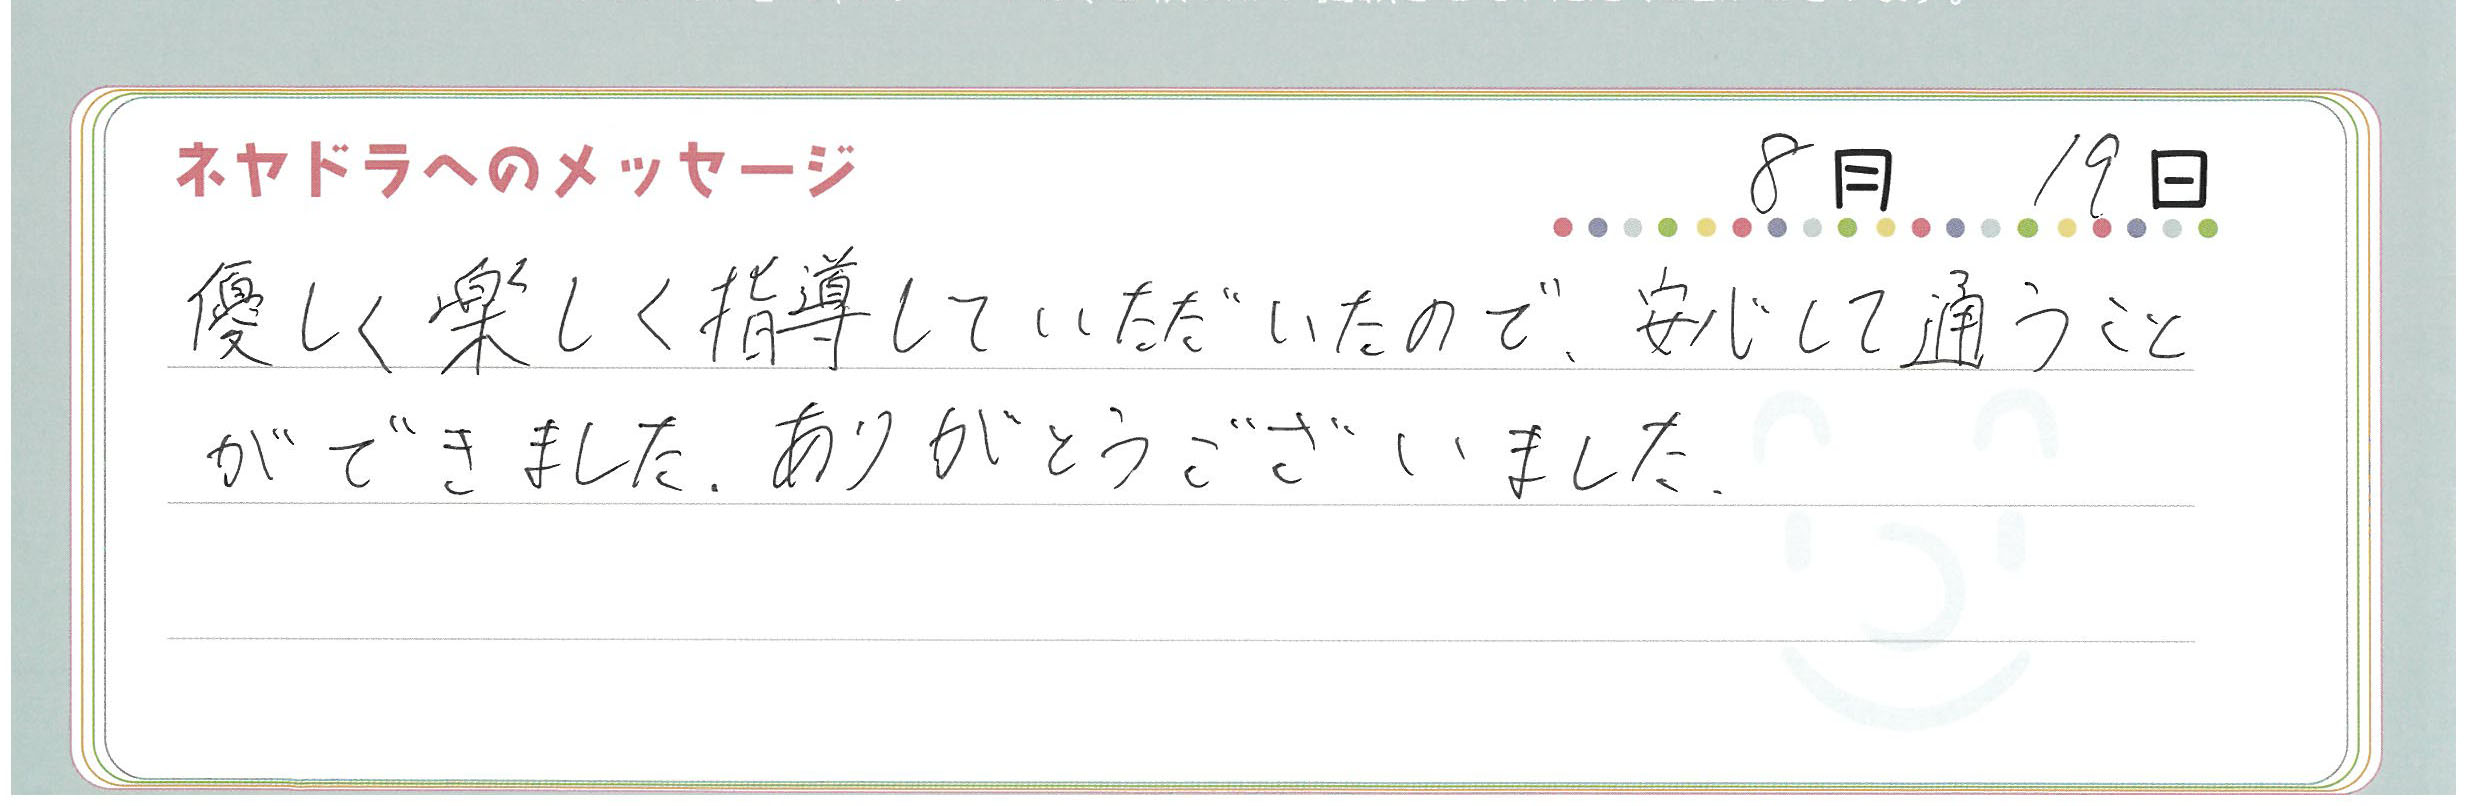 ネヤドラへのメッセージ 8月 19日
優しく楽しく指導していただいたので、安心して通うこと
ができました. ありがとうございました.